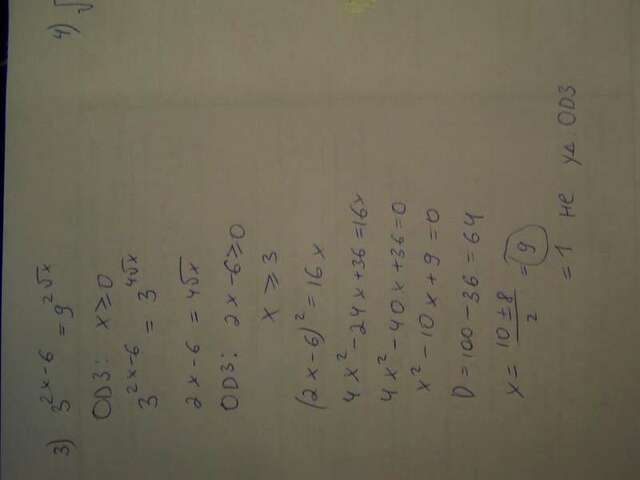 3) 3^{2x-6} = 9^{2√x}
ОДЗ: x ≥ 0
3^{2x-6} = 3^{4√x}
2x - 6 = 4√x
ОДЗ: 2x - 6 ≥ 0
x ≥ 3
(2x - 6)² = 16x
4x² - 24x + 36 = 16x
4x² - 40x + 36 = 0
x² - 10x + 9 = 0
D = 100 - 36 = 64
x = (10 ± 8)/2 = 9
= 1 не уд ОДЗ
4) √